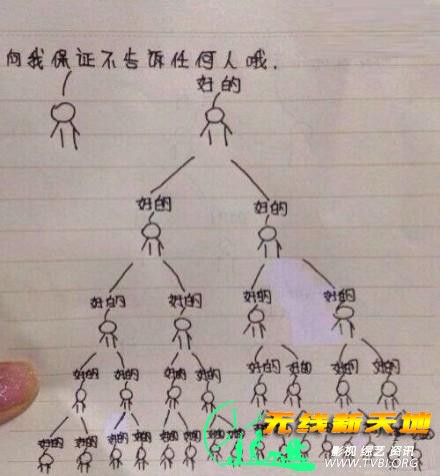 向我保证不告诉任何人哦.
好的
好的 好的
好的 好的 好的 好的
好的 好的 好的 好的 好的 好的 好的 好的
好的 好的 好的 好的 好的 好的 好的
无线新天地
影视 综艺 资讯
WWW.TVBJ.ORG